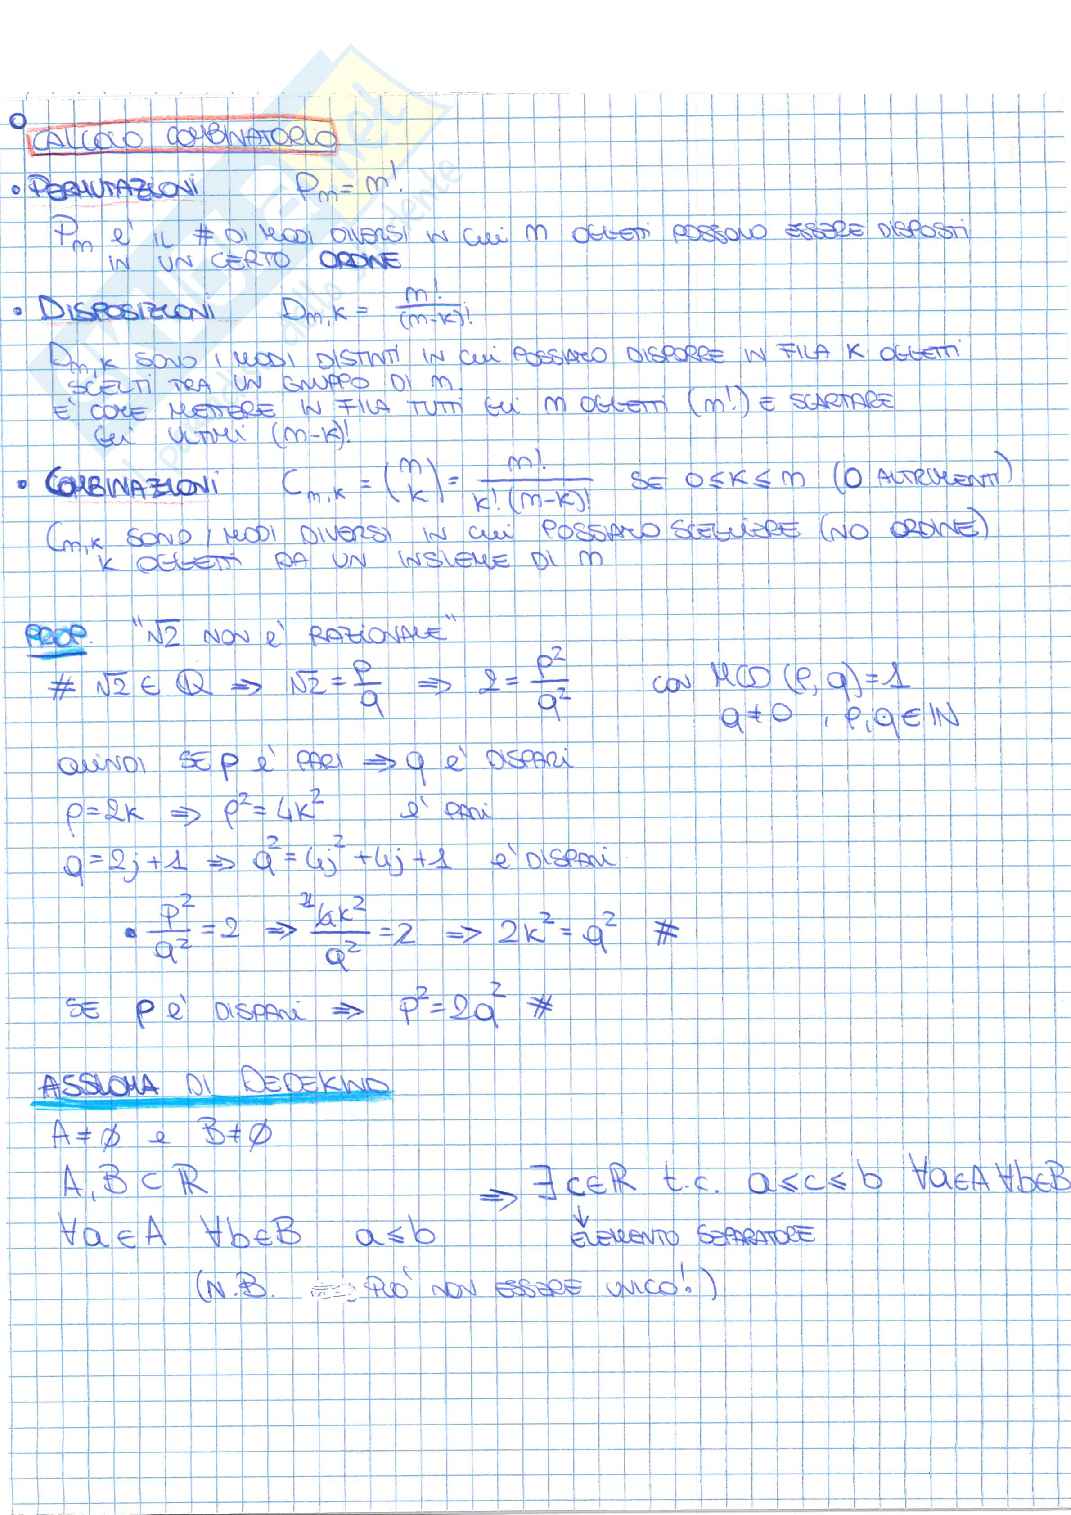 CALCOLO COMBINATORIO
• PERMUTAZIONI Pn = n!
Pn è IL # DI MODI DIVERSI IN CUI n OGGETTI POSSONO ESSERE DISPOSTI
IN UN CERTO ORDINE
• DISPOSIZIONI Dn,k = n!/(n-k)!
Dn,k SONO I MODI DISTINTI IN CUI POSSIAMO DISPORRE IN FILA K OGGETTI
SCELTI TRA UN GRUPPO DI n.
E' COME METTERE IN FILA TUTTI GLI n OGGETTI (n!) E SCARTARE
GLI ULTIMI (n-k)!
• COMBINAZIONI Cn,k = (n k) = n!/(k!(n-k)!) SE 0≤k≤n (0 ALTRIMENTI)
Cn,k SONO I MODI DIVERSI IN CUI POSSIAMO SCEGLIERE (NO ORDINE)
K OGGETTI DA UN INSIEME DI n
PROP. "√2 NON è RAZIONALE"
# √2 ∈ ℚ ⇒ √2 = p/q ⇒ 2 = p²/q² con MCD (p, q) = 1
q ≠ 0 , p,q ∈ ℕ
QUINDI SE p è PARI ⇒ q è DISPARI
p = 2k ⇒ p² = 4k² è PARI
q = 2j + 1 ⇒ q² = 4j² + 4j + 1 è DISPARI
• p²/q² = 2 ⇒ 4k²/q² = 2 ⇒ 2k² = q² #
SE p è DISPARI ⇒ p² = 2q² #
ASSIOMA DI DEDEKIND
A ≠ ∅ e B ≠ ∅
A, B ⊂ ℝ ⇒ ∃ c∈ℝ t.c. a ≤ c ≤ b ∀a∈A ∀b∈B
∀a ∈ A ∀b ∈ B a ≤ b ↓ ELEMENTO SEPARATORE
(N.B. PUÒ NON ESSERE UNICO!)